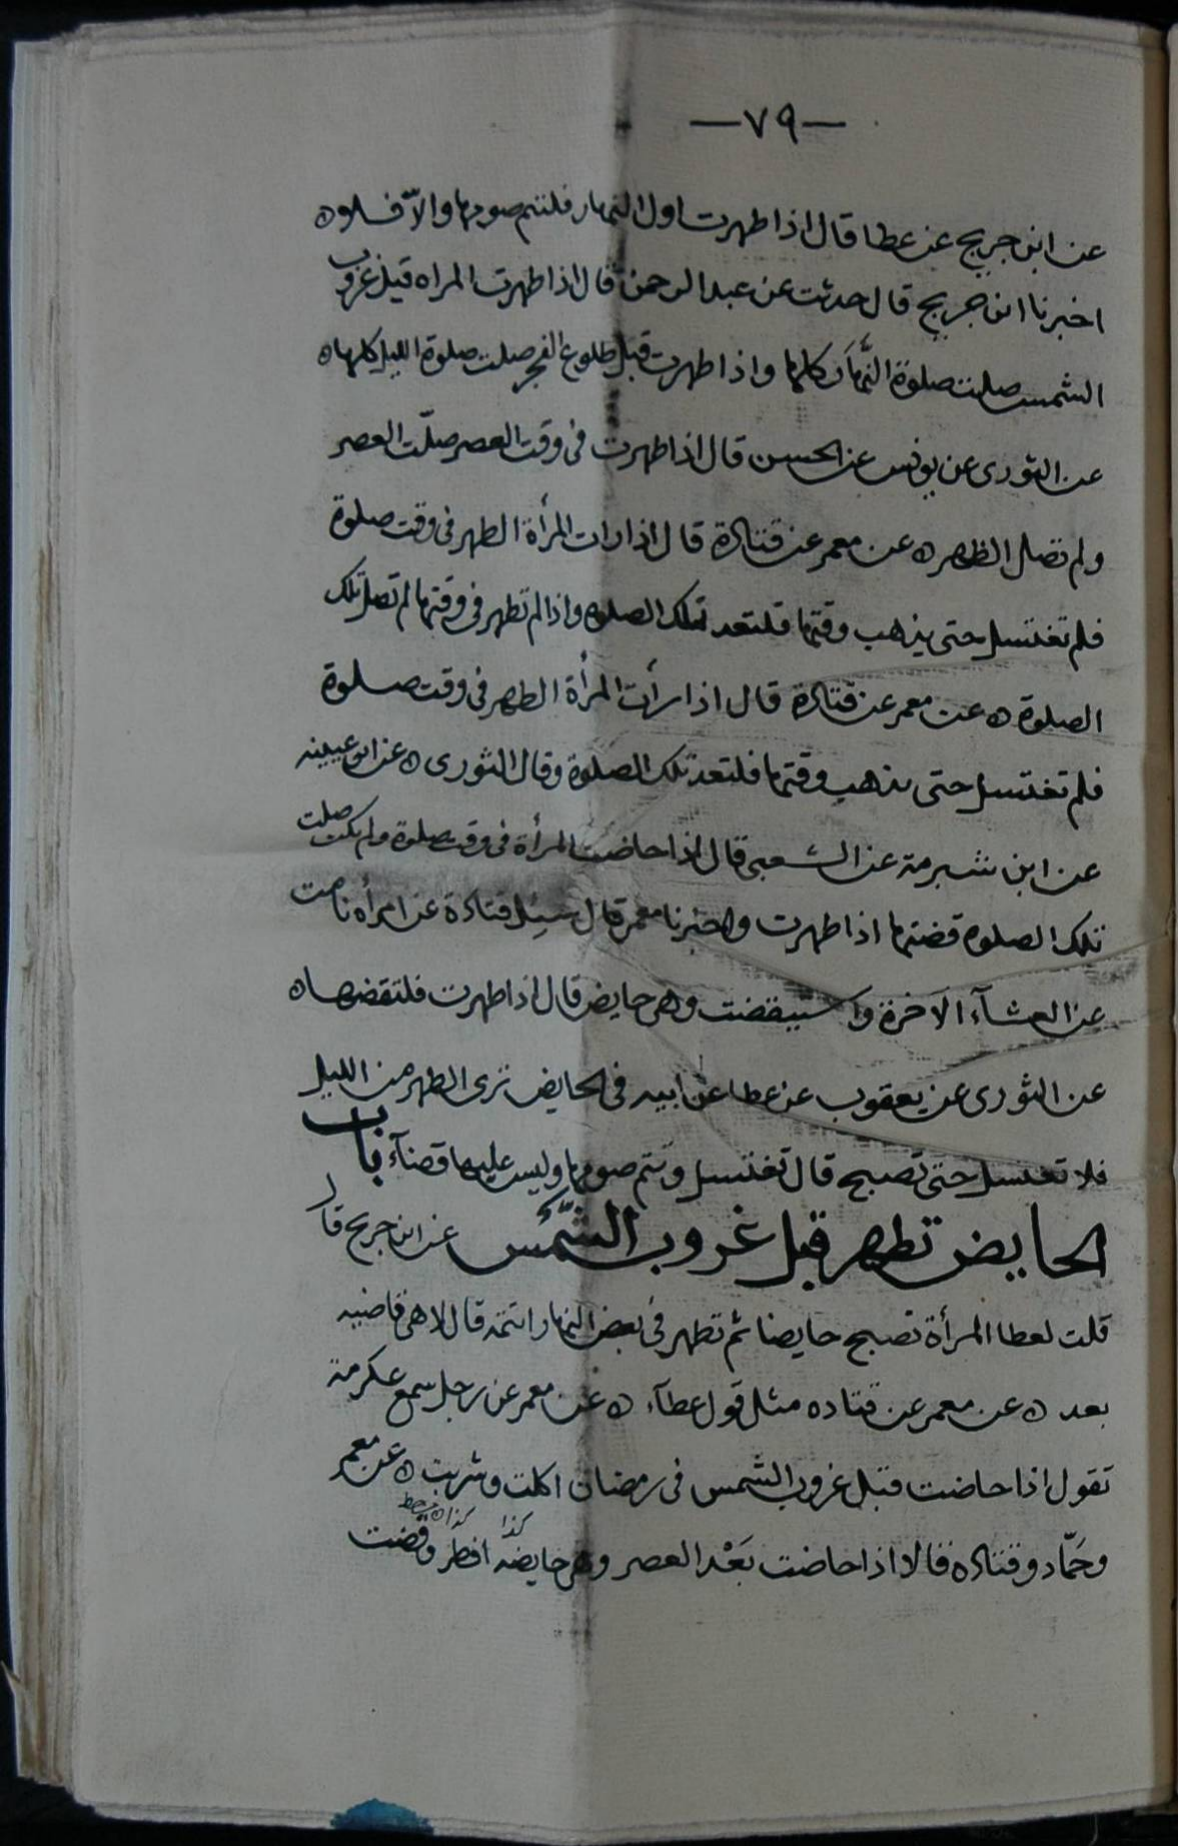 —٧٩—
عن ابن جريج عن عطا قال اذا طهرت اول النهار فلتتم صومها والّا فلا ه
اخبرنا ابن جريج قال حدثت عن عبد الرحمن قال اذا طهرت المراه قبل غروب
الشمس صلت صلوة النّهار كلها واذا طهرت قبل طلوع الفجر صلت صلوة الليل كلها ه
عن الثورى عن يونس عن الحسن قال اذا طهرت فى وقت العصر صلّت العصر
ولم تصل الظهر ه عن معمر عن قتادة قال اذا رات المرأة الطهر فى وقت صلوة
فلم تغتسل حتى يذهب وقتها فلتعد تلك الصلوه واذا لم تطهر فى وقتها لم تصل تلك
الصلوة ه عن معمر عن قتادة قال اذا رأت المرأة الطهر فى وقت صلوة
فلم تغتسل حتى يذهب وقتها فلتعد تلك الصلوة وقال الثورى ه عن ابن عيينه
عن ابن شبرمة عن الشعبى قال اذا حاضت المرأة فى وقت صلوة ولم تكن صلت
تلك الصلوه قضتها اذا طهرت واخبرنا معمر قال سئل قتادة عن امرأه نامت
عن العشآء الآخرة واستيقضت وهى حايض قال اذا طهرت فلتقضها ه
عن الثورى عن يعقوب عن عطا عن ابيه فى الحايض ترى الطهر من الليل
فلا تغتسل حتى تصبح قال تغتسل وتتم صومها وليس عليها قضآء باب
الحايض تطهر قبل غروب الشّمس عن ابن جريج قال
قلت لعطا المرأة تصبح حايضا ثم تطهر فى بعض النهار اتتمه قال لا هى قاضيه
بعد ه عن معمر عن قتاده مثل قول عطآء ه عن معمر عن رجل سمع عكرمة
تقول اذا حاضت قبل غروب الشمس فى رمضان اكلت وشربت ه عن معمر
وحمّاد وقتاده قالا اذا حاضت بَعْد العصر وهى حايضه افطر وقضت
كذا كذا